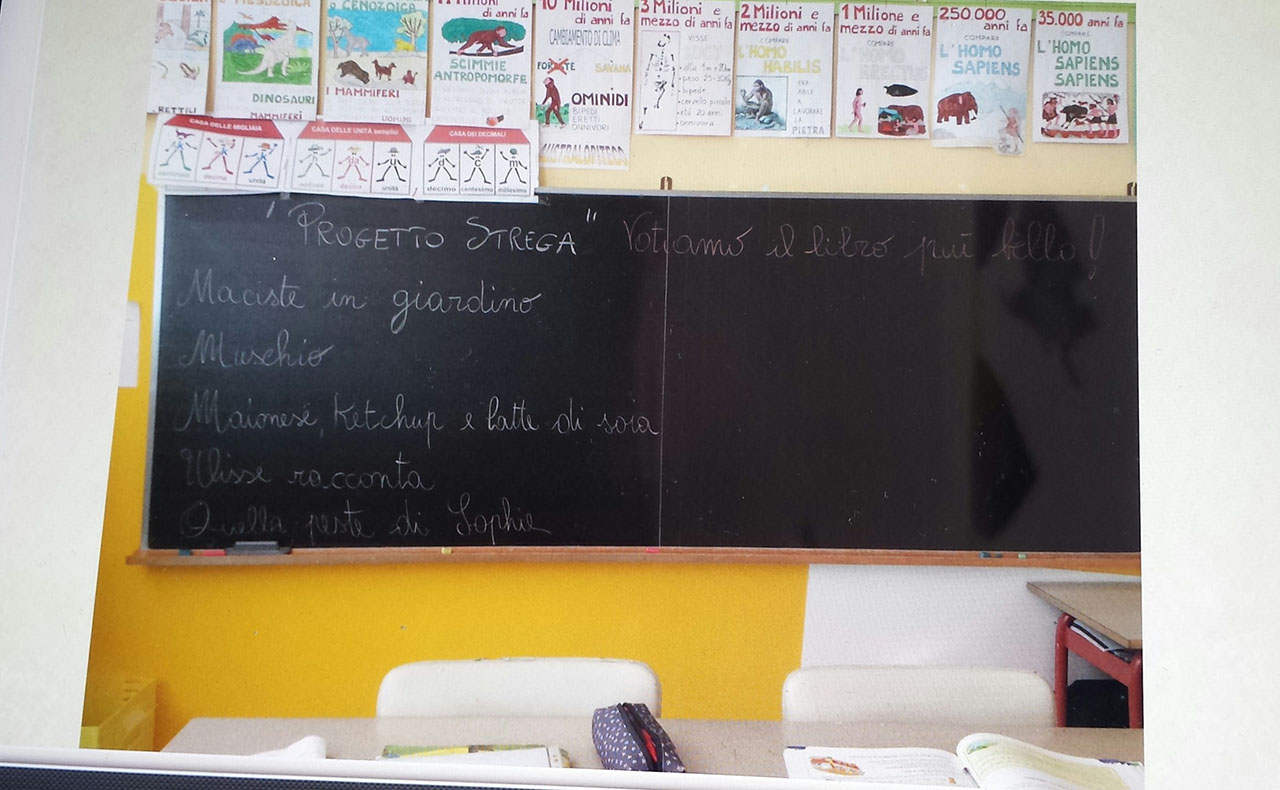 MESOZOICA
DINOSAURI
MAMMIFERI
CENOZOICA
I MAMMIFERI
di anni fa
SCIMMIE
ANTROPOMORFE
10 Milioni
di anni fa
CAMBIAMENTO DI CLIMA
FORESTE SAVANA
OMINIDI
BIPEDI
ERETTI
ONNIVORI
AUSTRALOPITECO
3 Milioni e
mezzo di anni fa
VISSE
LUCY
bipede
cervello piccolo
età 20 anni
onnivora
2 Milioni e
mezzo di anni fa
COMPARE
L'HOMO
HABILIS
ERA
ABILE
A
LAVORARE
LA
PIETRA
1 Milione e
mezzo di anni fa
COMPARE
L'HOMO
ERECTUS
250 000
anni fa
COMPARE
L'HOMO
SAPIENS
35.000 anni fa
COMPARE
L'HOMO
SAPIENS
SAPIENS
RETTILI
CASA DELLE MIGLIAIA
centinaia decina unità
CASA DELLE UNITÀ semplici
decina unità
CASA DEI DECIMALI
d c m
decimo centesimo millesimo
"PROGETTO STREGA" Votiamo il libro più bello!
Maciste in giardino
Muschio
Maionese, Ketchup e latte di soia
Ulisse racconta
Quella peste di Sophie